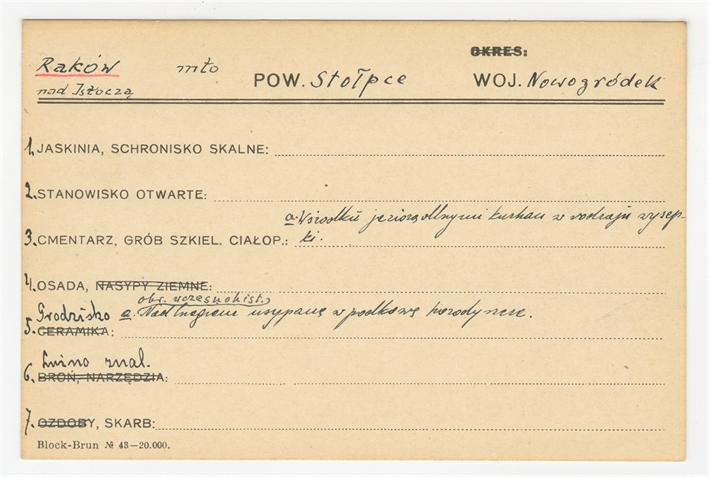 OKRES:
Raków mło POW. Stołpce WOJ. Nowogródek
nad Isłoczą
1. JASKINIA, SCHRONISKO SKALNE:
2. STANOWISKO OTWARTE:
a. W środku jeziora olbrzymi kurhan w rodzaju wysep-
3. CMENTARZ, GRÓB SZKIEL. CIAŁOP.: ki.
4. OSADA, NASYPY ZIEMNE:
obr. wczesnohist.
Grodzisko a. Nad brzegiem usypane w podkowę horodyszcze.
5. CERAMIKA:
Luźno znal.
6. BROŃ, NARZĘDZIA:
7. OZDOBY, SKARB:
Block-Brun № 43—20.000.